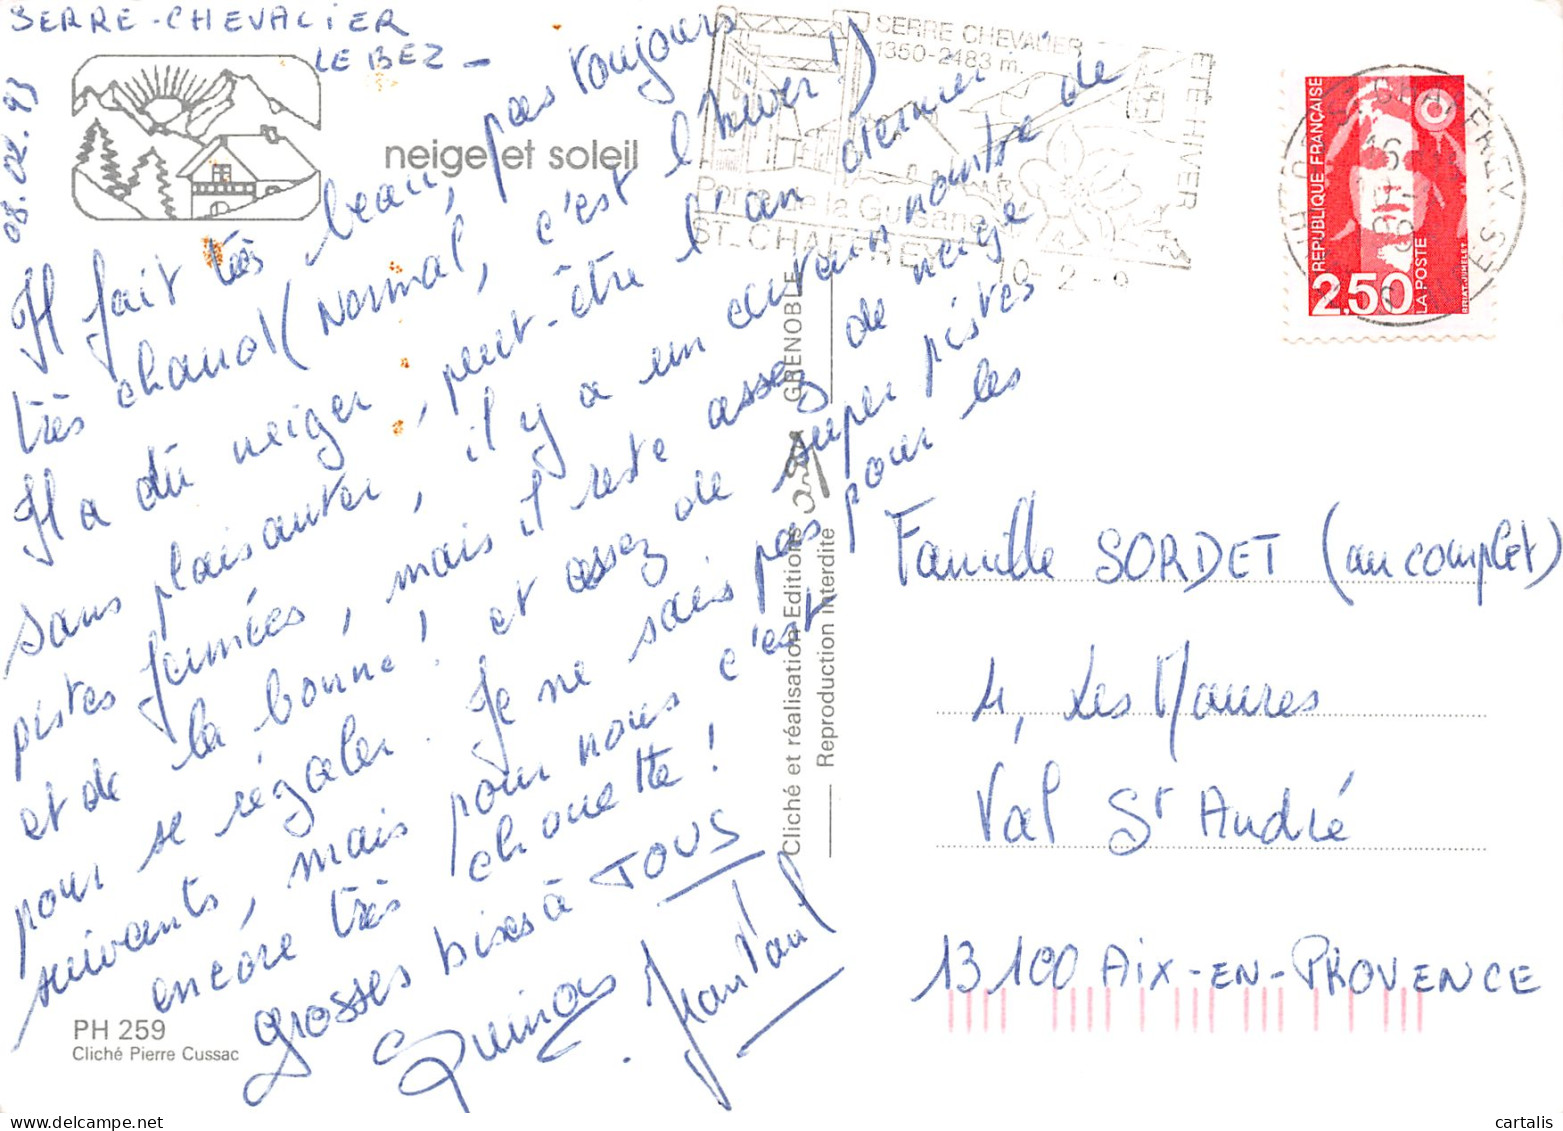 SERRE-CHEVALIER
LE BEZ -
08.02.93
neige et soleil
Il fait très beau, pas toujours
très chaud (Normal, c'est l'hiver!)
Il a dû neiger, peut-être l'an dernier
sans plaisanter, il y a un certain nombre de
pistes fermées, mais il reste assez de neige
et de la bonne! et assez de super pistes
pour se régaler. Je ne sais pas pour les
suivants, mais pour nous c'est
encore très chouette!
Grosses bises à TOUS
Jean Paul
PH 259
Cliché Pierre Cussac
Cliché et réalisation Editions
GRENOBLE
Reproduction Interdite
SERRE CHEVALIER
1350-2483 m.
ETE HIVER
Porte de la Guisane
ST-CHAFFREY
10-2-9
REPUBLIQUE FRANÇAISE
2,50
LA POSTE
BRIAT-JUMELET
Famille SORDET (au complet)
4, Les Maures
Val St André
13100 AIX-EN-PROVENCE
cartalis